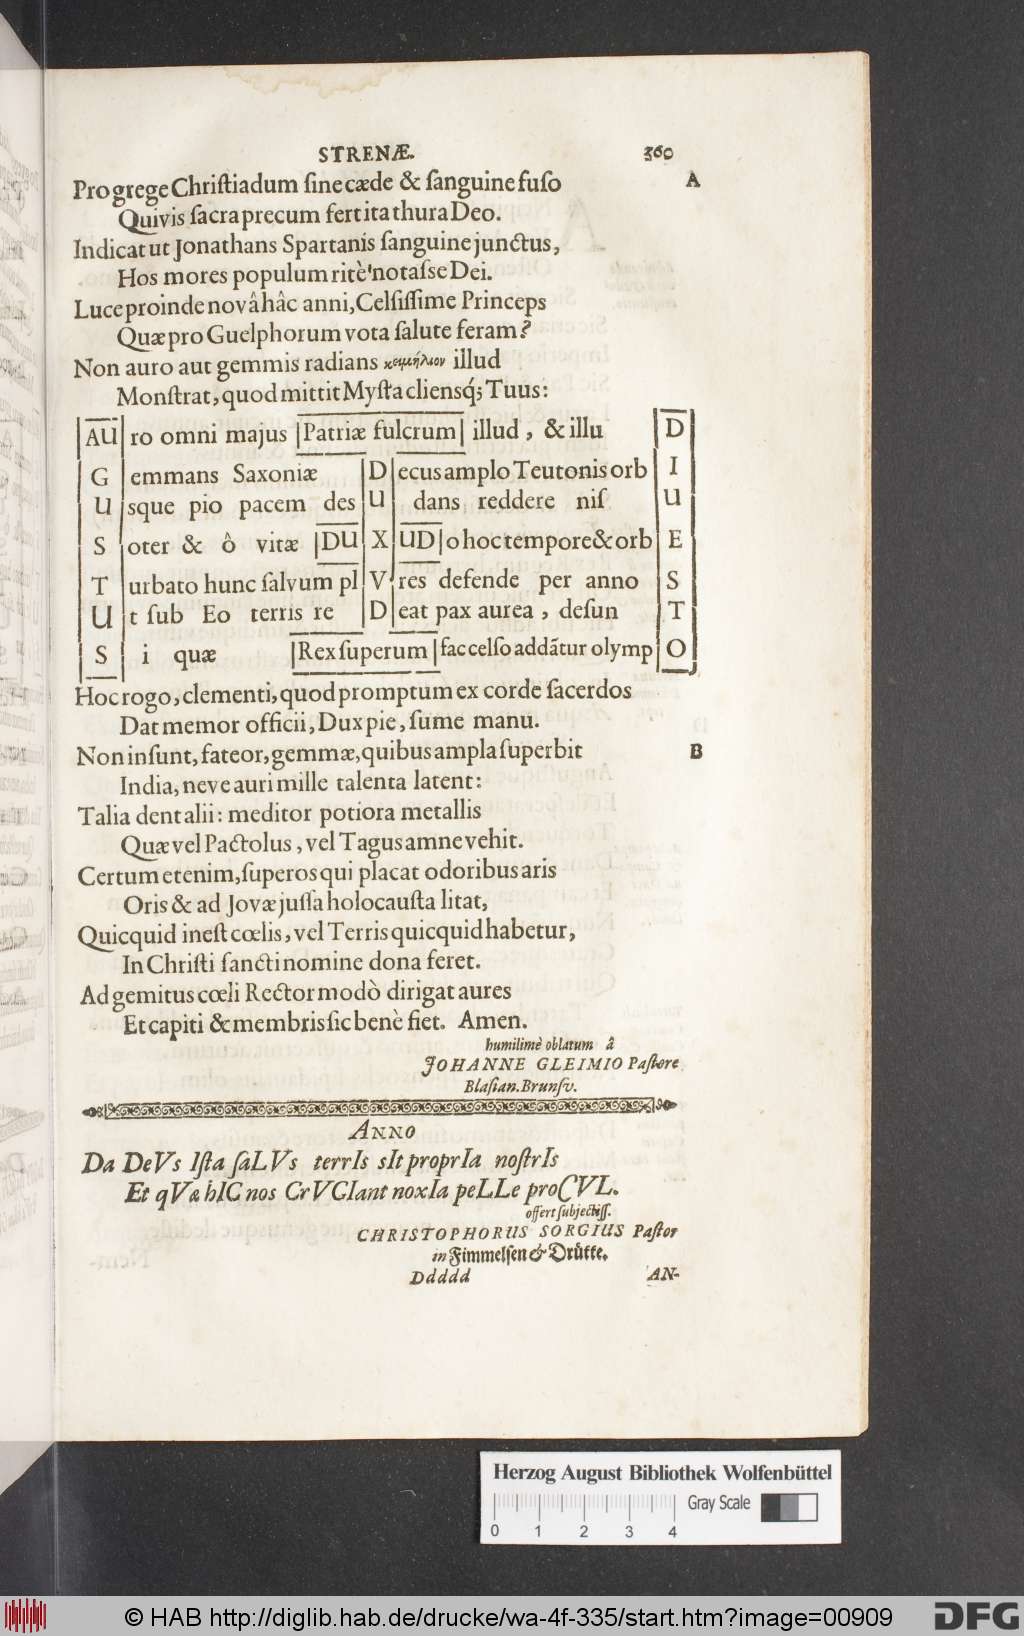 STRENÆ. 360
Pro grege Chriſtiadum ſine cæde & ſanguine fuſo A
Quivis ſacra precum fert ita thura Deo.
Indicat ut Jonathans Spartanis ſanguine junctus,
Hos mores populum ritè notaſse Dei.
Luce proinde novâ hâc anni, Celſiſſime Princeps
Quæ pro Guelphorum vota ſalute feram?
Non auro aut gemmis radians κειμήλιον illud
Monſtrat, quod mittit Myſta cliensq́; Tuus:
AU ro omni majus Patriæ fulcrum illud, & illu D
G emmans Saxoniæ D ecus amplo Teutonis orb I
U sque pio pacem des U dans reddere niſ U
S oter & ô vitæ DU X UD o hoc tempore & orb E
T urbato hunc ſalvum pl V res defende per anno S
U t ſub Eo terris re D eat pax aurea, deſun T
S i quæ Rex ſuperum fac celſo addãtur olymp O
Hoc rogo, clementi, quod promptum ex corde ſacerdos
Dat memor officii, Dux pie, ſume manu.
Non inſunt, fateor, gemmæ, quibus ampla ſuperbit B
India, neve auri mille talenta latent:
Talia dent alii: meditor potiora metallis
Quæ vel Pactolus, vel Tagus amne vehit.
Certum etenim, ſuperos qui placat odoribus aris
Oris & ad Jovæ juſſa holocauſta litat,
Quicquid ineſt cœlis, vel Terris quicquid habetur,
In Chriſti ſancti nomine dona feret.
Ad gemitus cœli Rector modò dirigat aures
Et capiti & membris ſic benè fiet. Amen.
humilimè oblatum â
JOHANNE GLEIMIO Paſtore
Blaſian. Brunſv.
ANNO
Da DeVs Iſta ſaLVs terrIs sIt proprIa noſtrIs
Et qVæ hIC nos CrVCIant noxIa peLLe proCVL.
offert ſubjectiſſ.
CHRISTOPHORUS SORGIUS Paſtor
in Fimmelſen & Drütte.
Ddddd AN-
Herzog August Bibliothek Wolfenbüttel
Gray Scale
0 1 2 3 4
© HAB http://diglib.hab.de/drucke/wa-4f-335/start.htm?image=00909
DFG